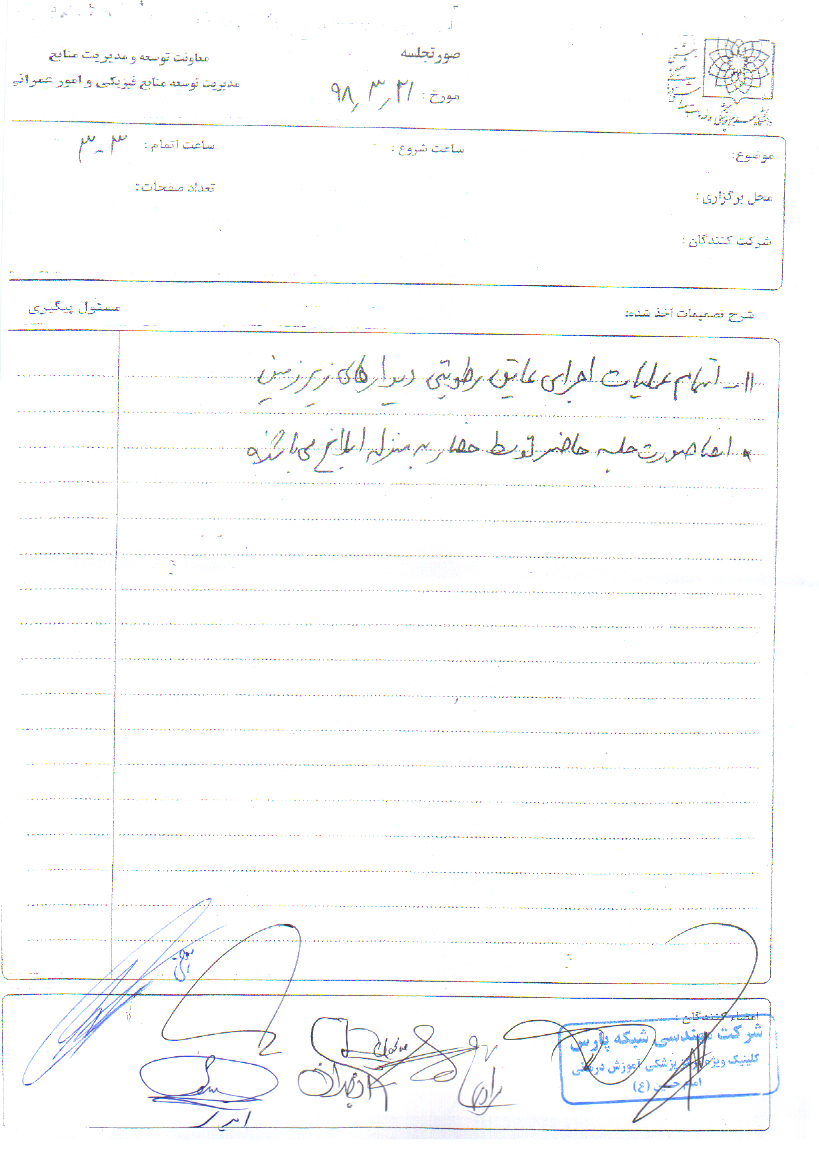 صورتجلسه
مورخ : ۹۸٫۳٫۲۱
معاونت توسعه و مدیریت منابع
مدیریت توسعه منابع فیزیکی و امور عمرانی
موضوع:
ساعت شروع :
ساعت اتمام : ۳-۳
محل برگزاری :
تعداد صفحات :
شرکت کنندگان :
شرح تصمیمات اخذ شده:
مسئول پیگیری
۱۱- اتمام عملیات اجرای عایق رطوبتی دیوارهای زیرزمین
* امضا صورت جلسه حاضر توسط حضار به منزله ابلاغ می باشد
امضاء کنندگان :
شرکت مهندسی شبکه پارس
کلینیک ویژه پزشکی آموزش درمانی
امام حسین (ع)